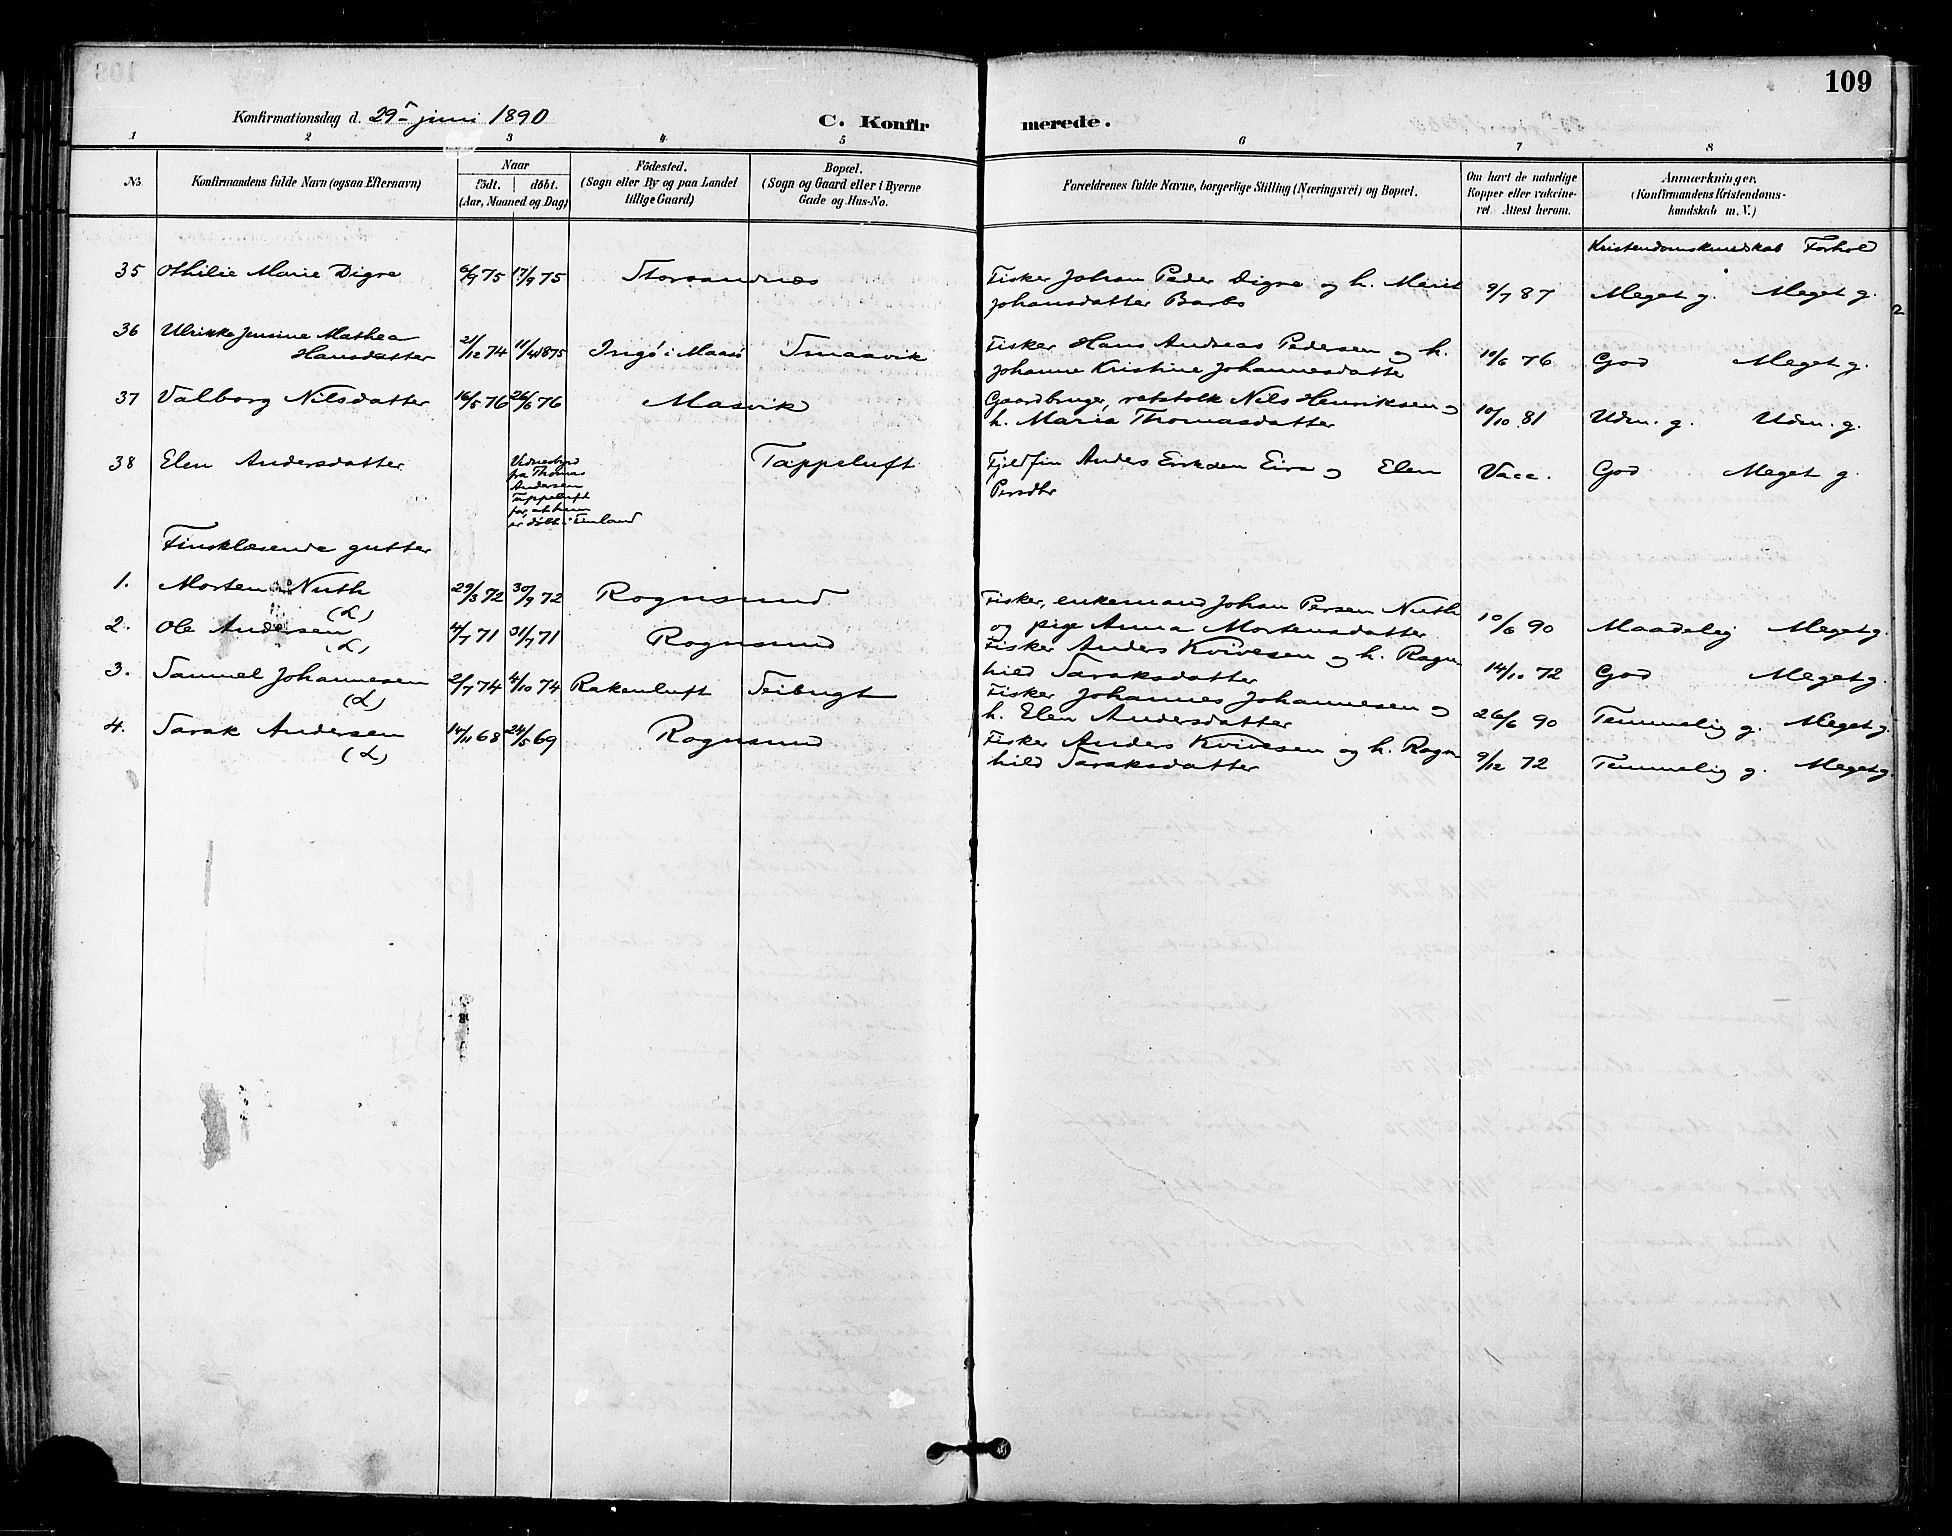 109
Konfirmationsdag d. 29 juni 1890
C. Konfirmerede.
1 2 3 4 5 6 7 8
No
Konfirmandens fulde Navn (ogsaa Efternavn)
Naar
født. | døbt.
(Aar, Maaned og Dag)
Fødested.
(Sogn eller By og paa Landet
tillige Gaard)
Bopæl.
(Sogn og Gaard eller i Byerne
Gade og Hus-No.
Forældrenes fulde Navne, borgerlige Stilling (Næringsvei) og Bopæl.
Om havt de naturlige
Kopper eller vakcine-
ret. Attest herom.
Anmærkninger.
(Konfirmandens Kristendoms-
kundskab m. V.)
Kristendomskundskab Forhold
35 Othilie Marie Digre 6/9 75 17/9 75 Storsandnes Fisker Johan Peder Digre og h. Merit 9/7 87 Meget g. Meget g.
Johansdatter Barbo
36 Ulrikke Jensine Mathea
Hansdatter 21/12 74 11/4 1875 Ingø i Maasø Smaavik Fisker Hans Andreas Pedersen og h. 10/6 76 God Meget g.
Johanne Kristine Johannesdatte
37 Valborg Nilsdatter 16/5 76 26/6 76 Masvik Gaardbruger, retstolk Nils Henriksen og 10/10 81 Udm. g. Udm. g.
h. Maria Thomasdatter
38 Elen Andersdatter Tappeluft Fjeldfin Anders Eira og Elen Vacc. God Meget g.
Persdtr
Vidnesbyrd
fra Thomas
Andersen
Tappeluft
for, at hun
er døbt i Finland
Finsklæsende gutter
1. Morten Nuth 29/3 72 30/9 72 Rognsund Fisker, enkemand Johan Persen Nuth 10/6 90 Maadelig Meget g.
(L) og pige Anna Mortensdatter
2. Ole Andersen 4/7 71 31/7 71 Rognsund Fisker Anders Kvivesen og h. Ragn 14/10 72 God Meget g.
(L) hild Saraksdatter
3. Samuel Johannesen 2/7 74 4/10 74 Rakenluft Seibugt Fisker Johannes Johannesen og 26/6 90 Temmelig g. Meget g.
(L) h. Elen Andersdatter
4. Sarak Andersen 14/11 68 24/5 69 Rognsund Fisker Anders Kvivesen og h. Ragn 9/12 72 Temmelig g. Meget g.
(L) hild Saraksdatter